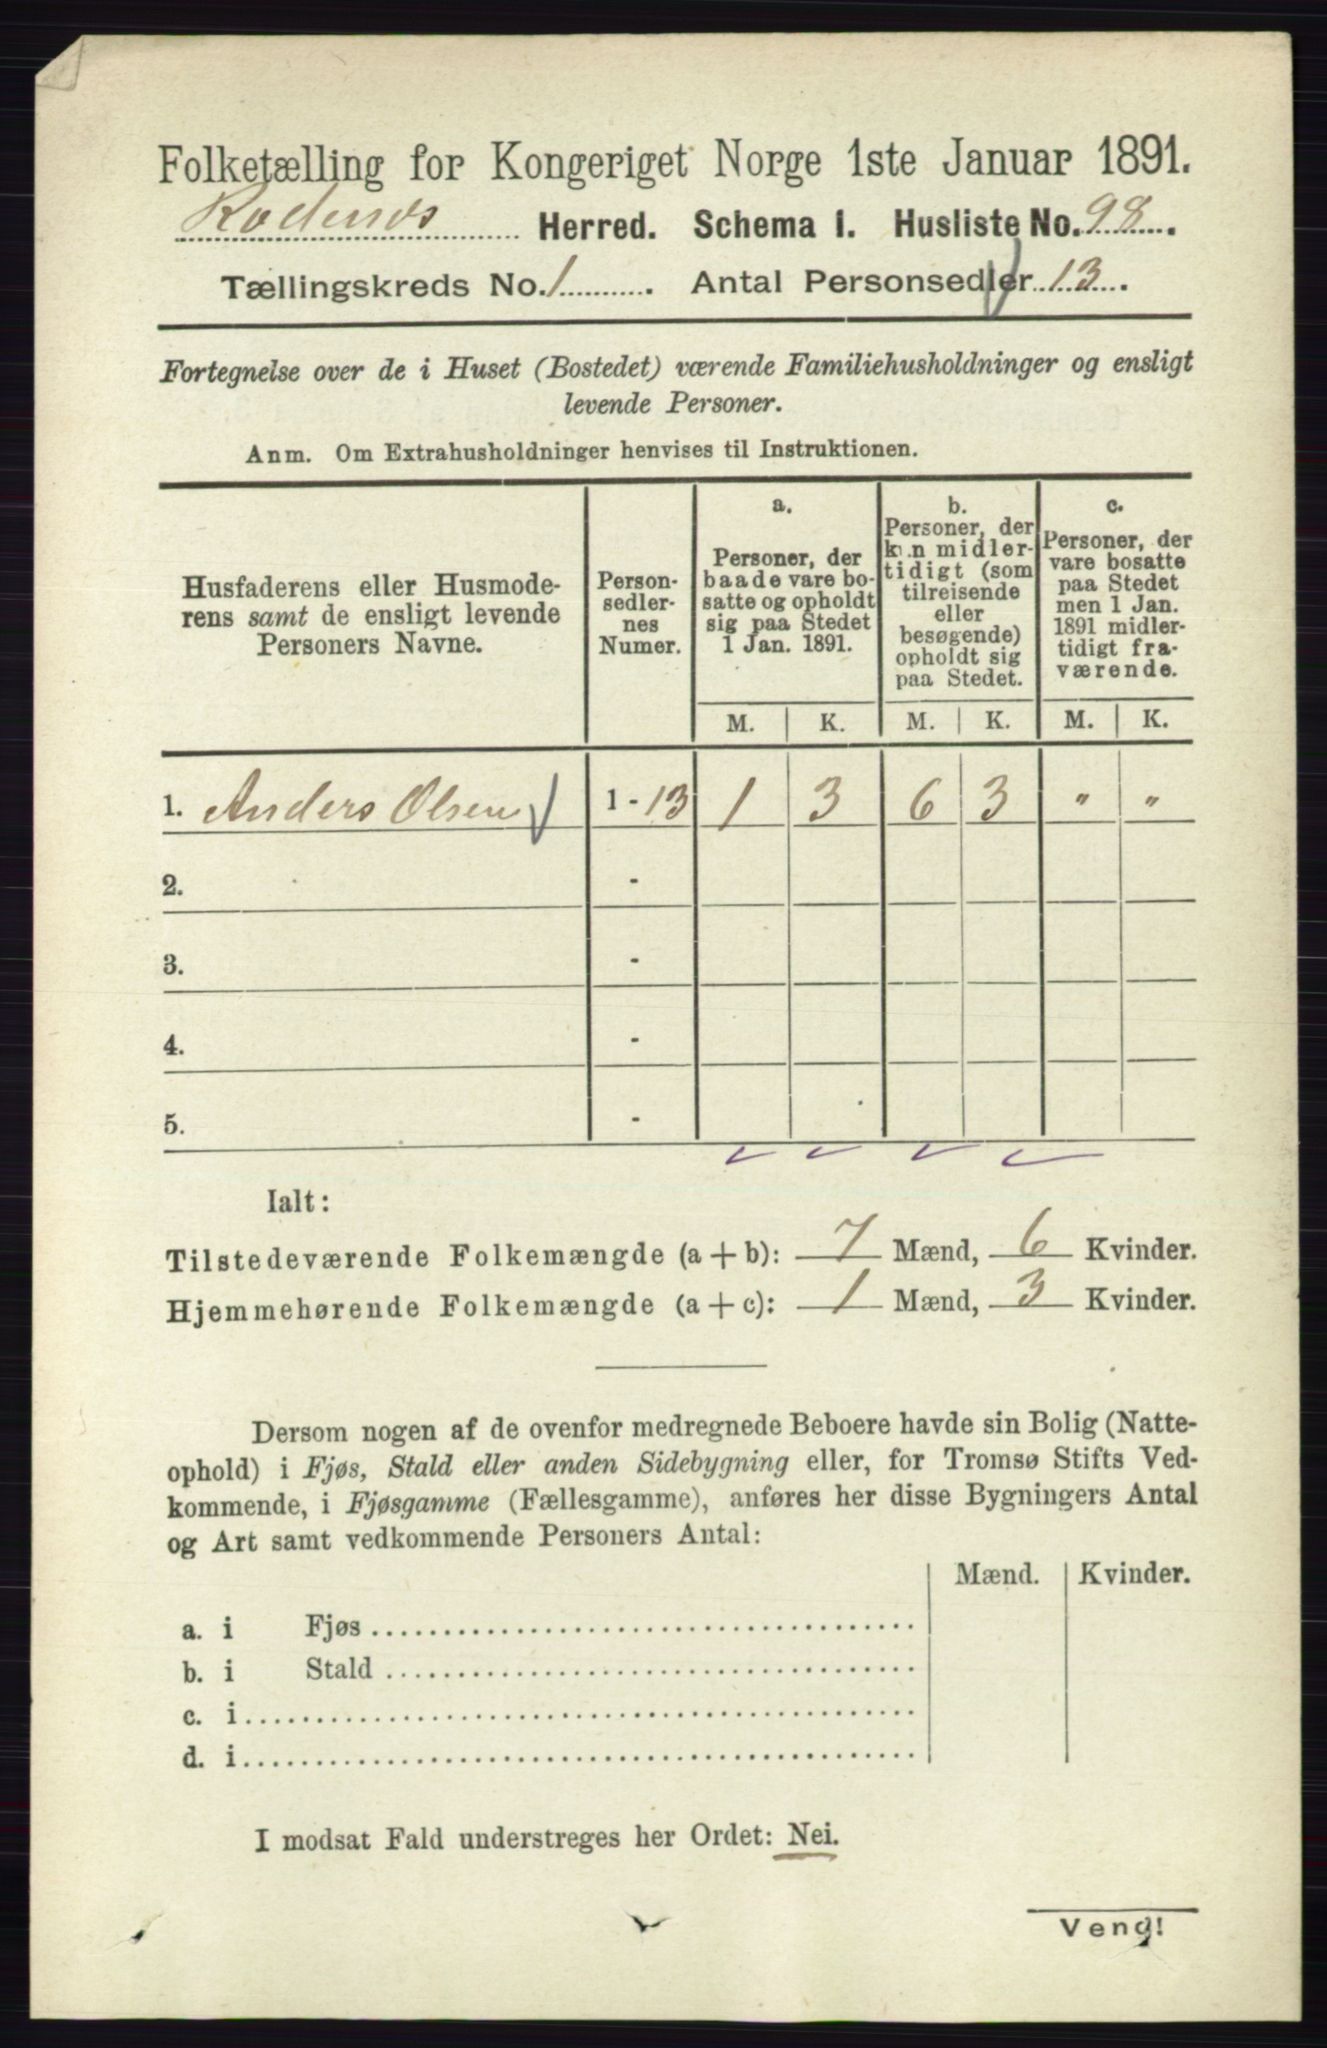 Folketælling for Kongeriget Norge 1ste Januar 1891.
Rødenes Herred. Schema I. Husliste No. 98.
Tællingskreds No. 1. Antal Personsedler 13.
Fortegnelse over de i Huset (Bostedet) værende Familiehusholdninger og ensligt
levende Personer.
Anm. Om Extrahusholdninger henvises til Instruktionen.
Husfaderens eller Husmode-
rens samt de ensligt levende
Personers Navne.
Person-
sedler-
nes
Numer.
a.
Personer, der
baade vare bo-
satte og opholdt
sig paa Stedet
1 Jan. 1891.
b.
Personer, der
kun midler-
tidigt (som
tilreisende
eller
besøgende)
opholdt sig
paa Stedet.
c.
Personer, der
vare bosatte
paa Stedet
men 1 Jan.
1891 midler-
tidigt fra-
værende.
M. K. M. K. M. K.
1. Anders Olsen 1 - 13 1 3 6 3 " "
2. -
3. -
4. -
5. -
Ialt:
Tilstedeværende Folkemængde (a + b): 7 Mænd, 6 Kvinder.
Hjemmehørende Folkemængde (a + c): 1 Mænd, 3 Kvinder.
Dersom nogen af de ovenfor medregnede Beboere havde sin Bolig (Natte-
ophold) i Fjøs, Stald eller anden Sidebygning eller, for Tromsø Stifts Ved-
kommende, i Fjøsgamme (Fællesgamme), anføres her disse Bygningers Antal
og Art samt vedkommende Personers Antal:
Mænd. Kvinder.
a. i Fjøs
b. i Stald
c. i
d. i
I modsat Fald understreges her Ordet: Nei.
Vend!